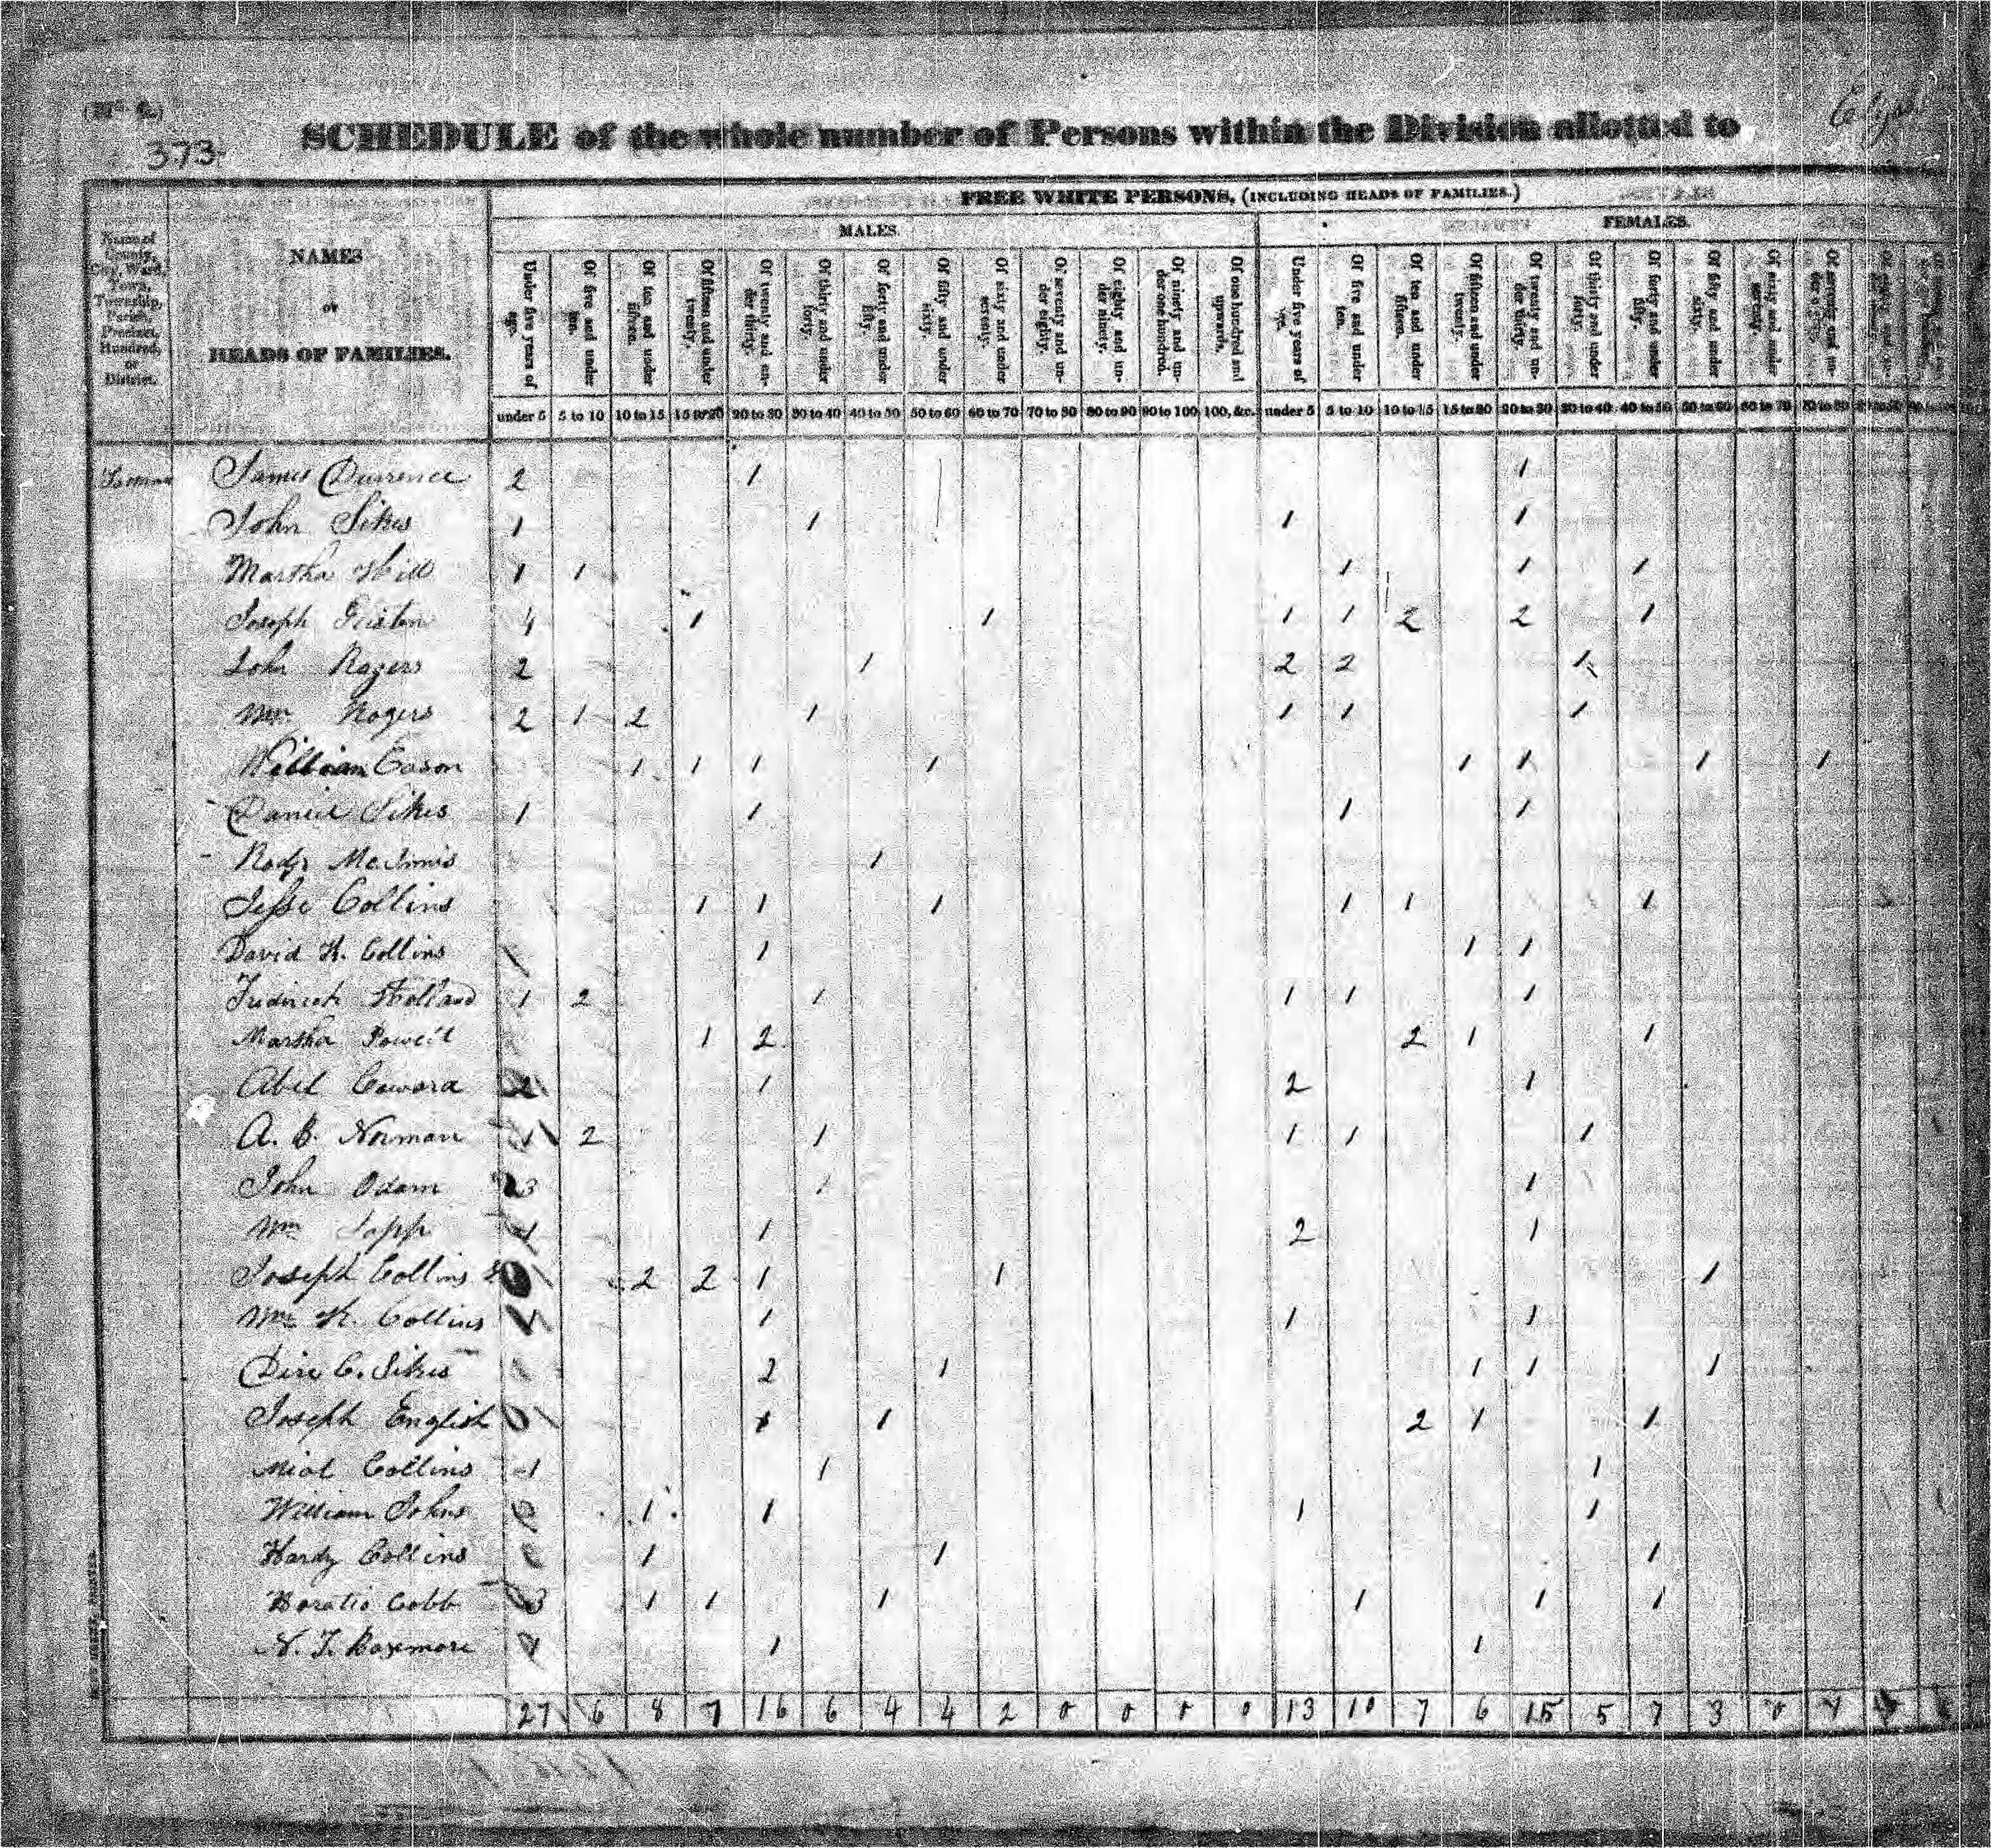 373
SCHEDULE of the whole number of Persons within the Division allotted to
FREE WHITE PERSONS, (INCLUDING HEADS OF FAMILIES.)
MALES. FEMALES.
Name of County, City, Ward, Town, Township, Parish, Precinct, Hundred, or District.
NAMES
OF
HEADS OF FAMILIES.
Under five years of age. Of five and under ten. Of ten and under fifteen. Of fifteen and under twenty. Of twenty and under thirty. Of thirty and under forty. Of forty and under fifty. Of fifty and under sixty. Of sixty and under seventy. Of seventy and under eighty. Of eighty and under ninety. Of ninety and under one hundred. Of one hundred and upwards. Under five years of age. Of five and under ten. Of ten and under fifteen. Of fifteen and under twenty. Of twenty and under thirty. Of thirty and under forty. Of forty and under fifty. Of fifty and under sixty. Of sixty and under seventy. Of seventy and under
under 5 5 to 10 10 to 15 15 to 20 20 to 30 30 to 40 40 to 50 50 to 60 60 to 70 70 to 80 80 to 90 90 to 100 100, &c. under 5 5 to 10 10 to 15 15 to 20 20 to 30 30 to 40 40 to 50 50 to 60 60 to 70 70 to 80
James Durrence 2 1 1
John Sikes 1 1 1 1
Martha Hill 1 1 1 1 1
Joseph 4 1 1 1 1 2 2 1
John Rogers 2 1 2 2 1
Wm Rogers 2 1 2 1 1 1 1
William Eason 1 1 1 1 1 1 1 1
Daniel Sikes 1 1 1 1
McInnis 1
Jesse Collins 1 1 1 1 1 1
David H. Collins 1 1 1
Holland 1 2 1 1 1 1
Martha Powell 1 2 2 1 1
Abel Coward 1 2 1
A. B. Norman 1 2 1 1 1 1
John Odam 3 1 1
Wm Tapp 1 1 2 1
Joseph Collins 2 2 1 1 1
Wm H. Collins 1 1 1
C. Sikes 2 1 1 1 1
Joseph English 1 1 2 1 1
Collins 1 1 1
William Johns 1 1 1 1
Hardy Collins 1 1 1
Horatio Cobb 3 1 1 1 1 1 1
1 1
27 6 8 7 16 6 4 4 2 0 0 0 0 13 10 7 6 15 5 7 3 0